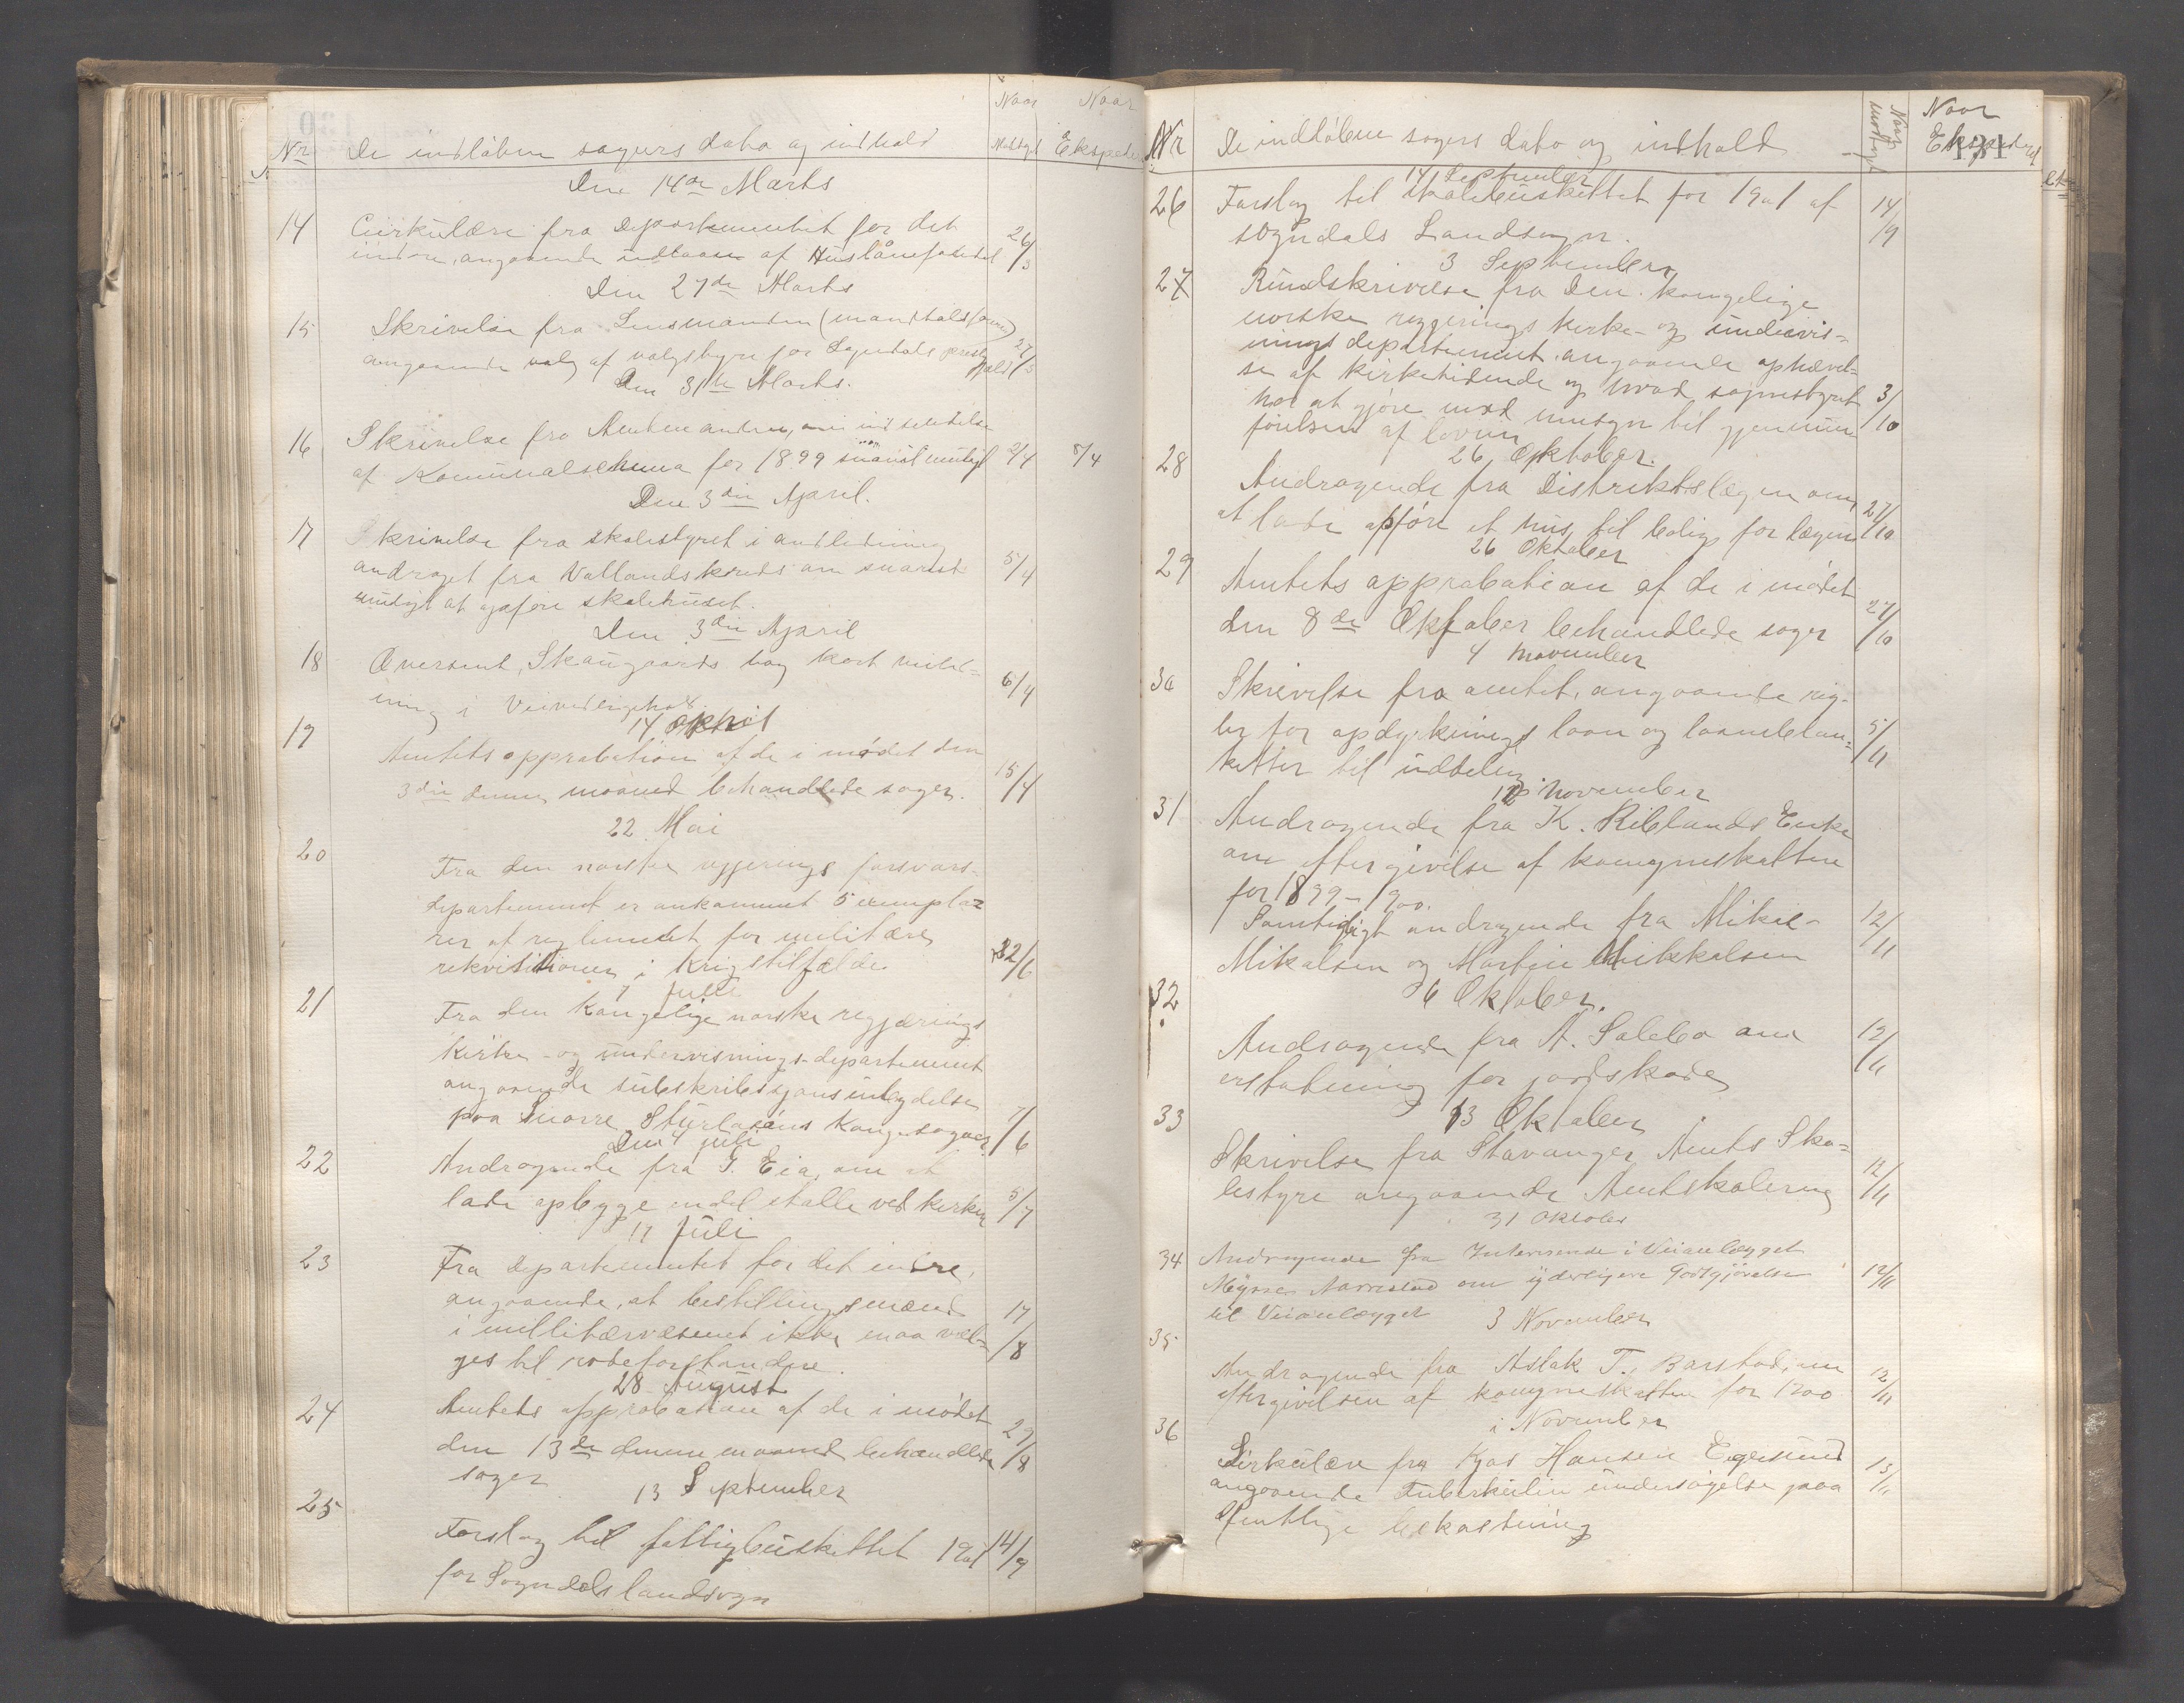 Nr De indløbne sagers dato og indhold Naar Modtaget Naar Eksped
Den 14de Marts
14 Cirkulære fra Departementet for det
indre, angaaende udlaan af Huslånefondet 26/3
Den 27de Marts
15 Skrivelse fra Lensmanden (mandtalsfører)
angaaende valg af valgstyre for Sogndals prestegjæld 27/3
Den 31te Marts.
16 Skrivelse fra Amtmanden, om indsendelse
af Kommunalskema for 1899 snarest muligt 2/4 8/4
Den 3die April.
17 Skrivelse fra skolestyret i anledning
andraget fra Vallands kreds om snarest
muligt at opføre skolehuset. 5/4
Den 3die April
18 Oversent, Skaugaards bog kort veiled-
ning i Veivedligehold 6/4
14 April
19 Amtets approbation af de i mødet den
3die denne maaned behandlede sager. 15/4
22 Mai
20 Fra den norske regjerings forsvars-
departement er ankommet 5 exempla-
rer af reglementet for militære
rekvisitioner i Krigstilfælde 22/6
7 Juli
21 Fra den Kongelige norske regjærings
Kirke- og undervisnings-departement
angaaende subskribtsjonsindbydelse
paa Snorre Sturlasøns Kongesagaer 7/6
Den 4 juli
22 Andragende fra T. Eia, om at
lade opbygge endel stalle ved kirken 5/7
17 Juli
23 Fra Departementet for det indre,
angaaende, at bestillingsmænd
i millitærvæsenet ikke maa væl-
ges til rodeforstandere. 17/8
28 August
24 Amtets approbation af de i mødet
den 13de denne maaned behandlede
sager 29/8
13 September
25 Forslag til fattigbudskettet 1901
for Sogndals landsogn 14/9
131
Nr De indløbne sagers dato og indhold Naar modtaget Naar Ekspederet
14 September
26 Forslag til skolebudskettet for 1901 af
sogndals Landsogn. 14/9
3 September
27 Rundskrivelse fra Den kongelige
norske regjerings kirke- og undervis-
nings departement angaaende ophævel-
se af kirketidende og hvad sognestyret
har at gjøre med hensyn til gjennem-
førelsen af loven 3/10
26 Oktober.
28 Andragende fra Distriktslægen om
at lade opføre et hus til bolig for lægen 27/10
26 Oktober
29 Amtets approbation af de i mødet
den 8de Oktober behandlede sager 27/10
4 November
30 Skrivelse fra amtet, angaaende reg-
ler for opdyrknings laan og laaneblan-
ketter til uddeling. 5/11
12 November
31 Andragende fra K. Riblands Enke
om eftergivelse af komuneskatten
for 1899-1900.
Samtidigt andragende fra Mikal
Mikalsen og Martin Mikkalsen 12/11
6 Oktober.
32 Andragende fra A. Salebo om
erstatning for jordskade 12/11
13 Oktober
33 Skrivelse fra Stavanger Amts Sko-
lestyre angaaende Amtskolerne 12/11
31 Oktober
34 Andragende fra Interesende i Veianlægget
Mysse Aarrestad om yderligere Godtgjørelse
til Veianlægget 12/11
3 November
35 Andragende fra Aslak T. Barstad, om
eftergivelsen af komuneskatten for 1900 12/11
1 November
36 Sirkulære fra Kjos Hansen Egersund
angaaende Tuberkulin undersøgelse paa
offentlige bekostning 13/11